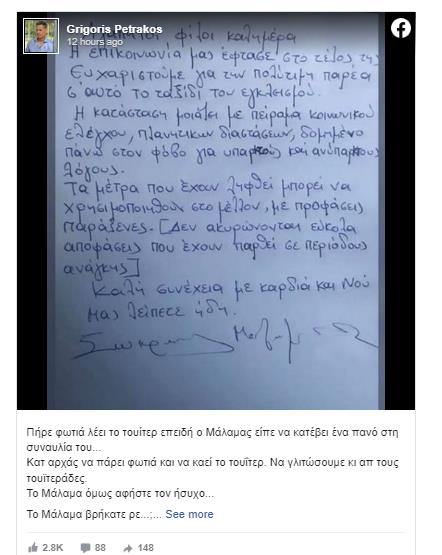 Grigoris Petrakos
12 hours ago
φίλοι καλημέρα
Η επικοινωνία μας έφτασε στο τέλος της
Ευχαριστούμε για την πολύτιμη παρέα
σ' αυτό το ταξίδι του εγκλεισμού.
Η κατάσταση μοιάζει με πείραμα κοινωνικού
ελέγχου, πλανητικών διαστάσεων, δομημένο
πάνω στον φόβο για υπαρκτούς και ανύπαρκτους
λόγους.
Τα μέτρα που έχουν ληφθεί μπορεί να
χρησιμοποιηθούν στο μέλλον, με προφάσεις
παράξενες. [Δεν ακυρώνονται εύκολα
αποφάσεις που έχουν παρθεί σε περιόδους
ανάγκης]
Καλή συνέχεια με καρδιά και Νού
Μας λείπετε ήδη.
Πήρε φωτιά λέει το τουίτερ επειδή ο Μάλαμας είπε να κατέβει ένα πανό στη
συναυλία του...
Κατ αρχάς να πάρει φωτιά και να καεί το τουΐτερ. Να γλιτώσουμε κι απ τους
τουϊτεράδες.
Το Μάλαμα όμως αφήστε τον ήσυχο...
Το Μάλαμα βρήκατε ρε...;... See more
2.8K 88 148